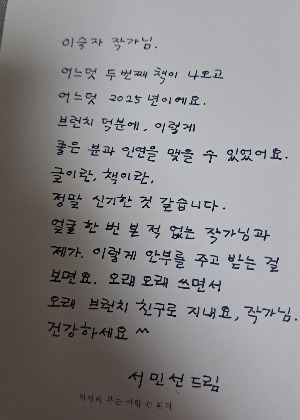 이숙자 작가님.
어느덧 두번째 책이 나오고
어느덧 2025년이에요.
브런치 덕분에, 이렇게
좋은 분과 인연을 맺을 수 있었어요.
글이란, 책이란,
정말 신기한 것 같습니다.
얼굴 한 번 본 적 없는 작가님과
제가. 이렇게 안부를 주고 받는 걸
보면요. 오래 오래 쓰면서
오래 브런치 친구로 지내요, 작가님.
건강하세요 ^^
서민선 드림
부는 바람 ©